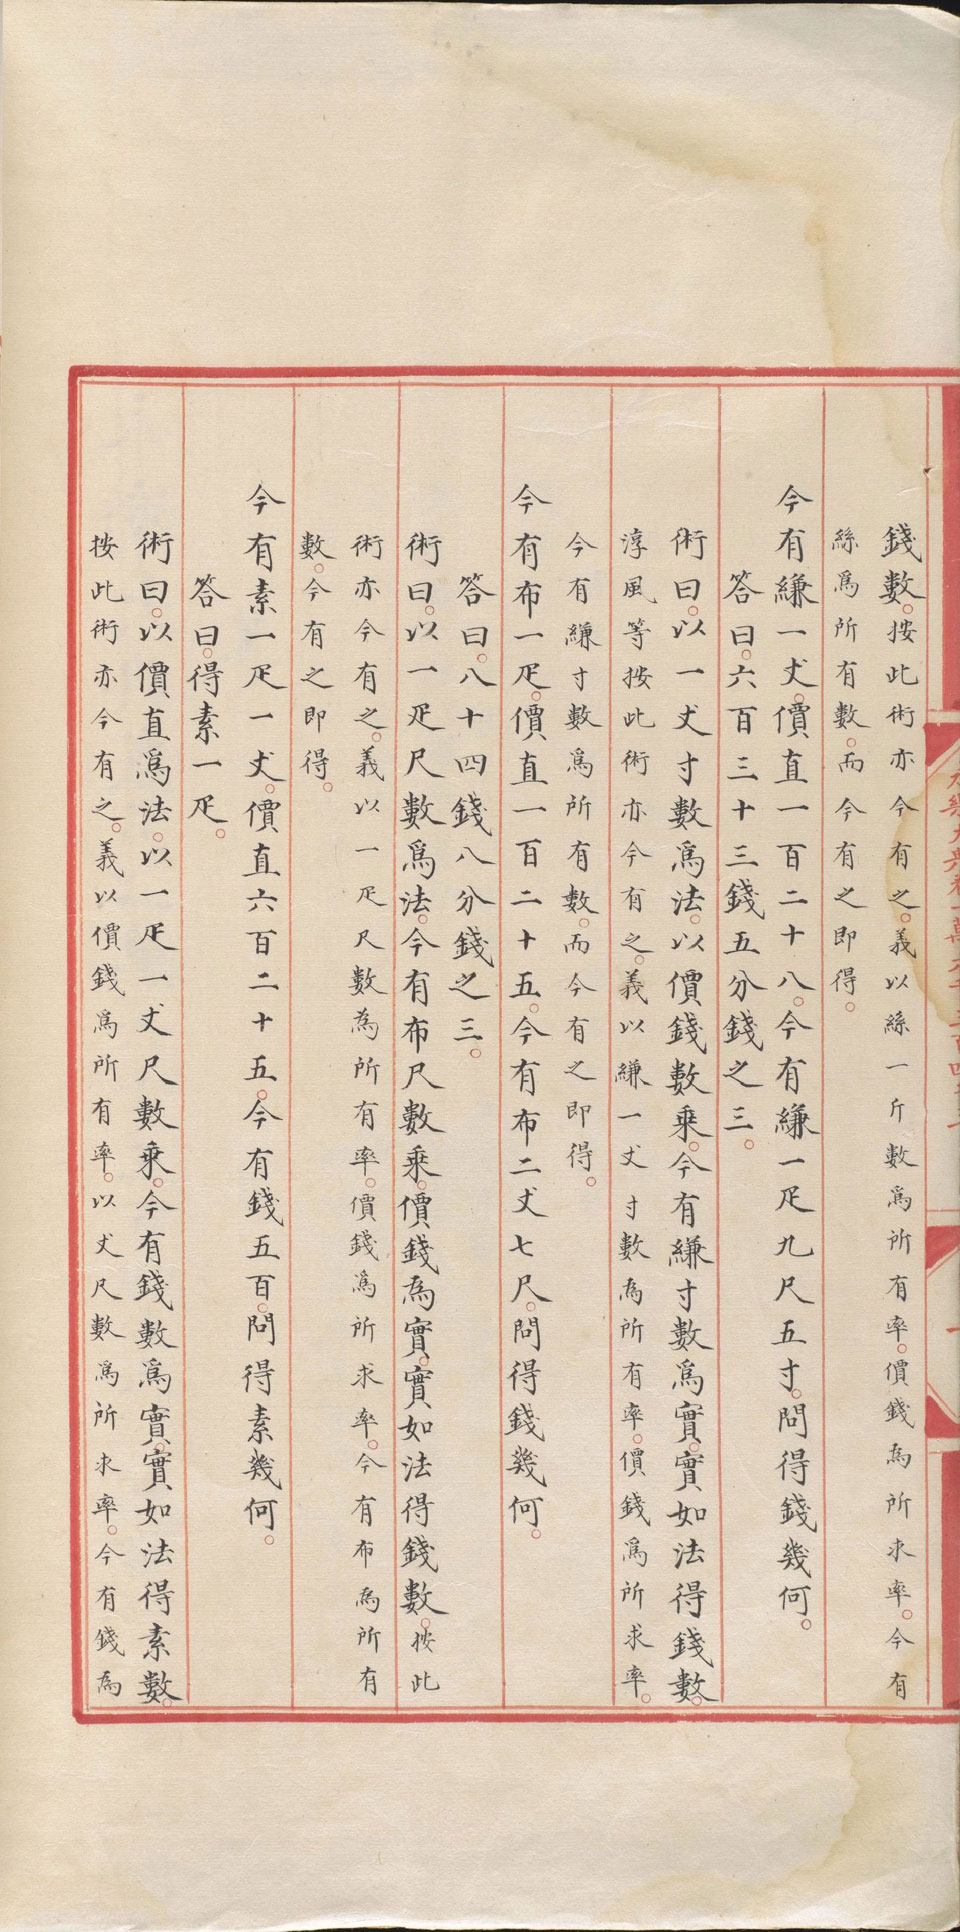 錢數。按此術亦今有之。義以絲一斤數爲所有率。價錢為所求率。今有
絲爲所有數。而今有之即得。
今有縑一丈。價直一百二十八。今有縑一疋九尺五寸。問得錢幾何。
答曰。六百三十三錢五分錢之三。
術曰。以一丈寸數爲法。以價錢數乗。今有縑寸數爲實。實如法得錢數。
淳風等按此術亦今有之。義以縑一丈寸數為所有率。價錢爲所求率。
今有縑寸數爲所有數。而今有之即得。
今有布一疋。價直一百二十五。今有布二丈七尺。問得錢幾何。
答曰。八十四錢八分錢之三。
術曰。以一疋尺數爲法。今有布尺數乗。價錢為實。實如法得錢數。按此
術亦今有之。義以一疋尺數為所有率。價錢爲所求率。今有布為所有
數。今有之即得。
今有素一疋一丈。價直六百二十五。今有錢五百。問得素幾何。
答曰。得素一疋。
術曰。以價直爲法。以一疋一丈尺數乗。今有錢數爲實。實如法得素數。
按此術亦今有之。義以價錢爲所有率。以丈尺數爲所求率。今有錢為